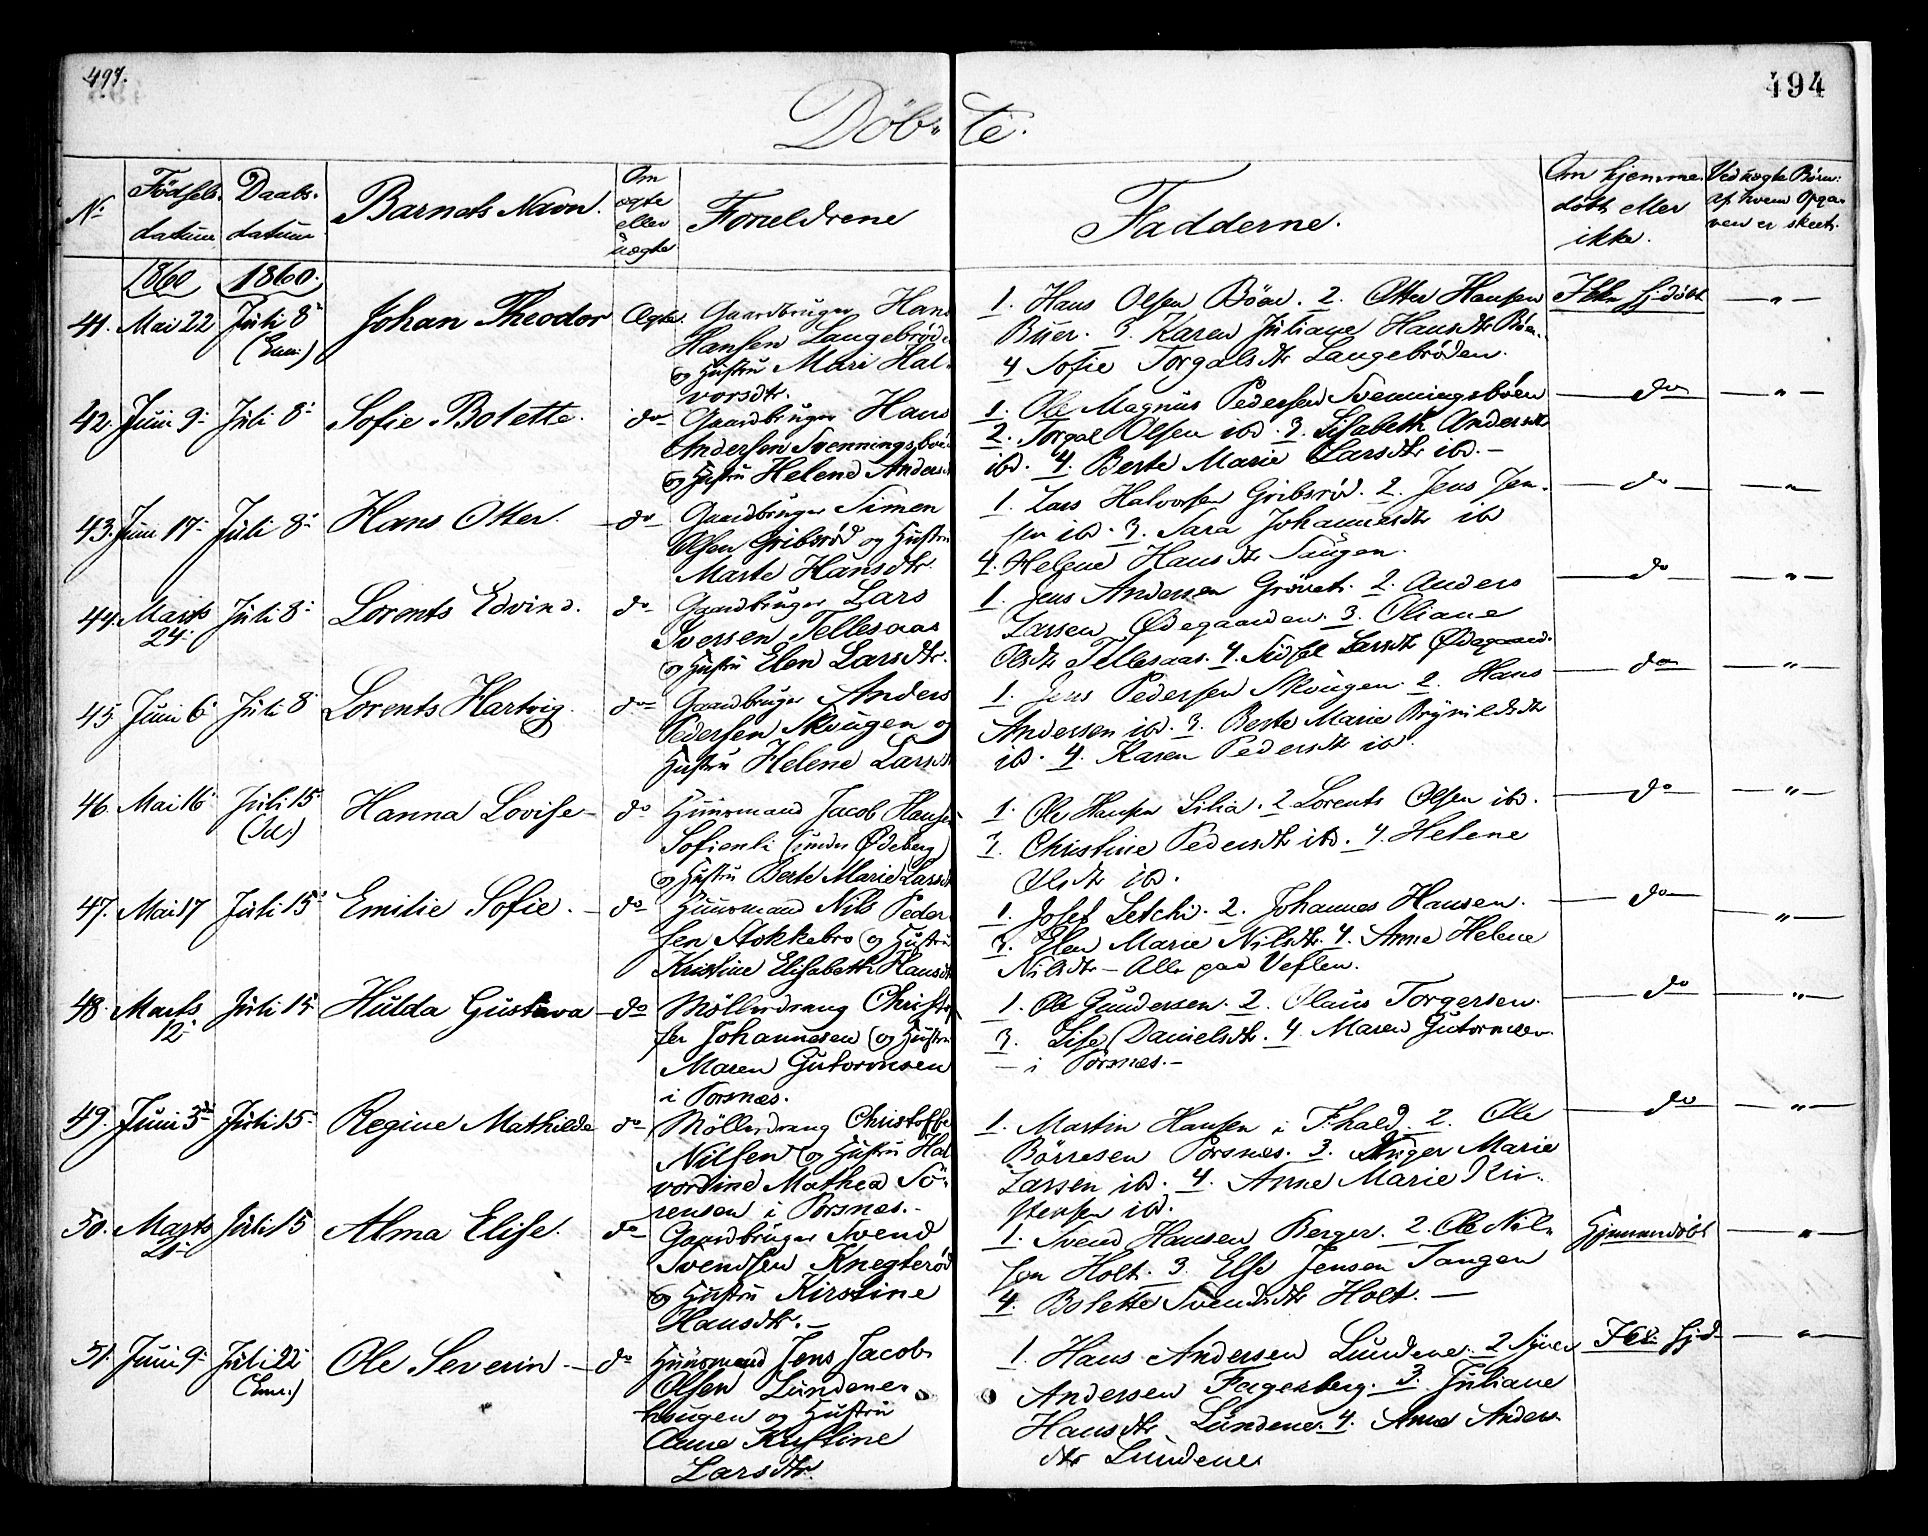 497.
494
Döb- te.
No
Födsels-
datum
Daabs-
datum
Barnets Navn.
Om
ægte
eller
uægte
Forældrene
Fadderne.
Om hjemme-
döbt eller
ikke.
Ved uægte Børn:
af hvem Opga-
ven er skeet.
1860
1860.
41. Mai 22 Juli 8 (Enn.) Johan Theodor Ægte. Gaardbruger Hans
Hansen Laugebröd
og Hustru Mari Hal-
vorsdtr.
1. Hans Olsen Böen. 2. Otter Hansen
Buer. 3. Karen Juliane Hansdtr Böen.
4 Sofie Torgalsdtr Laugebröden.
Ikke hjdöbt — " —
42. Juni 9 Juli 8 Sofie Bolette. do Gaardbruger Hans
Andersen Svenningsböen
og Hustru Helene Andersdt
1. Ole Magnus Pedersen Svenningsböen
2. Torgal Olsen ibd. 3. Lisabeth Andersdtr
ibd. 4. Berte Marie Larsdtr ibd. —
do — " —
43. Juni 17 Juli 8 Hans Otter. do Gaardbruger Simen
Olsen Gribsröd og Hustru
Marte Hansdtr.
1. Lars Halvorsen Gribsröd. 2. Jens Jen-
sen ibd. 3. Sara Johannesdtr ibd
4. Helene Hansdtr Saugen.
do — " —
44. Marts 24 Juli 8 Lorents Edvind. do Gaardbruger Lars
Iversen Tellesaas
og Hustru Elen Larsdtr.
1. Jens Andersen Grönet. 2. Anders
Larsen Ödegaarden. 3. Oliane
Olsdtr Tellesaas. 4. Sidsel Larsdtr Ödegaard.
do — " —
45 Juni 6 Juli 8 Lorents Hartvig. do Gaardbruger Anders
Pedersen Skougen og
Hustru Helene Larsdt
1. Jens Pedersen Skougen. 2. Hans
Andersen ibd. 3. Berte Marie Brynildsdtr
ibd. 4. Karen Pedersdtr ibd.
do — " —
46. Mai 16 Juli 15 Hanna Lovise do Huusmand Jacob Hansen
Sofienli (under Ödeberg)
og Hustru Berte Marie Larsdt
1. Ole Hansen Lilia. 2 Lorents Olsen ibd.
3. Christine Pedersdtr ibd. 4. Helene
Olsdtr ibd.
do — " —
47. Mai 17 Juli 15 Emilie Sofie. do Huusmand Nils Peder-
sen Stokkebro og Hustru
Kristine Elisabeth Hansdt
1. Josef Setchi. 2. Johannes Hansen.
3. Elen Marie Nilsdtr. 4. Anne Helene
Nilsdtr — Alle paa Veflen.
do — " —
48. Marts 12 Juli 15 Hulda Gustava do Möllerdreng Christof-
fer Johannesen og Hustru
Maren Gutormsen
i Torsnæs.
1. Ole Gundersen. 2. Olaus Torgersen.
3. Lise Danielsdtr. 4. Maren Gutormsen
— i Porsnæs. —
do — " —
49. Juni 3d Juli 15 Regine Mathilde do Möllerdreng Christoffer
Nilsen og Hustru Hal
vordine Mathea Sö-
rensen i Porsnæs. -
1. Martin Hansen i Fhald. 2. Ole
Börresen Porsnæs. 3. Inger Marie
Larsen ibd. 4. Anne Marie Kri-
stensen ibd.
do — " —
50. Marts 21 Juli 15 Alma Elise. do Gaardbruger Svend
Svendsen Knegteröd
og Hustru Kirstine
Hansdtr. —
1. Svend Hansen Berger. 2. Ole Nil-
sen Holt. 3. Else Jensen Tangen
4. Bolette Svendsdtr Holt. —
Hjemmedöbt — " —
51. Juni 9 Juli 22 (Enn.) Ole Severin do Huusmand Jens Jacob
Olsen Lundene-
haugen og Hustru
Anne Kristine
Larsdtr.
1. Hans Andersen Lundene. 2
Andersen Fagerberg. 3. Juliane
Hansdtr Lundene. 4. Anne Anders-
dtr Lundene
Ikke hjd — " —